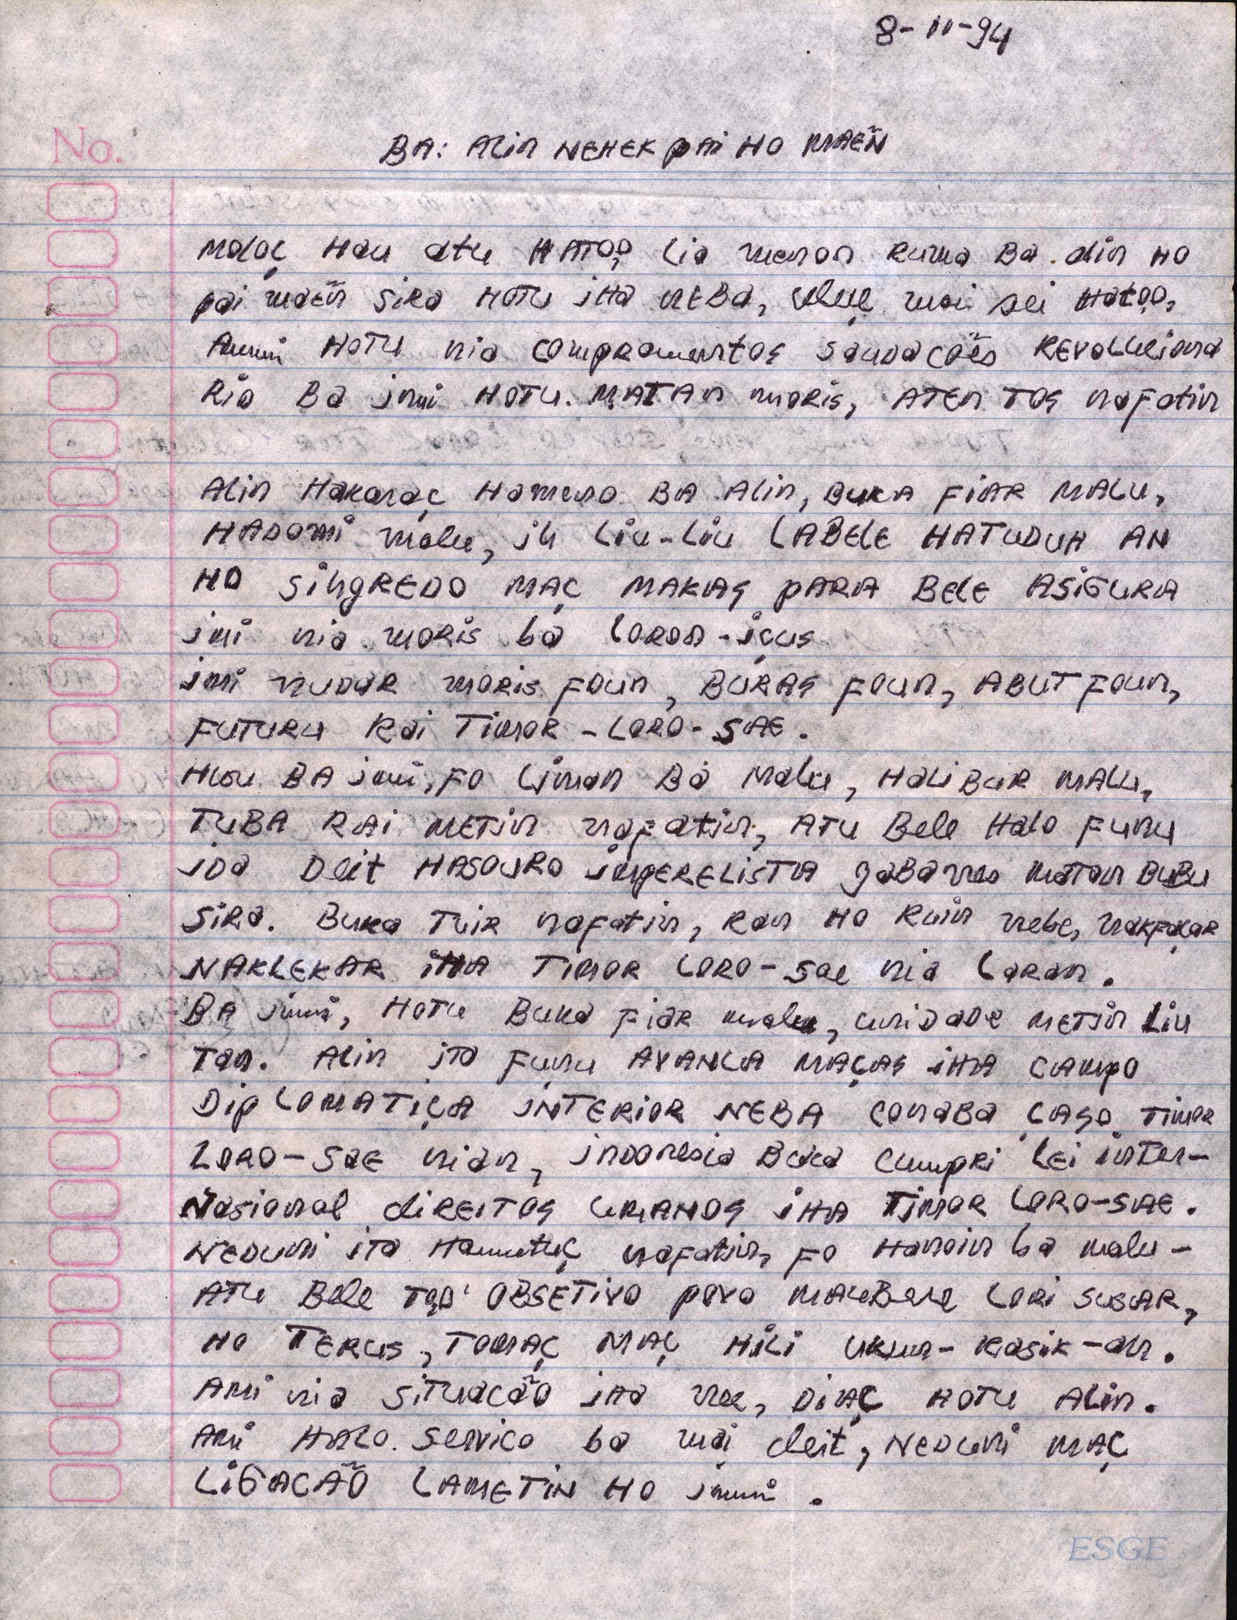 8-11-94
No.
BA: Alin NEHEK pai HO MAEÑ
Moloç Hau atu HATOO, Lia menon Ruma Ba alin HO
pai maeñ sira HOTU iHa NEBA, uluç mai sei Hatoo,
HOTU nia compromentos saudações REVOLUCIONA
Rio Ba imi HOTU. MATAN moris, ATEN TOS nafatin
Alin Hakaraç Hameno BA Alin, BUKA FIAR MALU,
HADOMI malu, Liu-Liu LABELE HATUDUH AN
HO SINGREDO MAÇ MAKAS PARA BELE ASIGURA
imi nia moris ba LORON-içus
imi NUDAR moris FOUN, BURAS FOUN, ABUT FOUN,
FUTURU Rai TIMOR-LORO-SAE.
BA imi, FO Liman Ba Malu, HALIBUR MALU,
TUBA RAI METIN nafatin, ATU Bele Halo Funu
ida Deit HASOURO IMPERELISTA matan BUBU
SIRA. Buka TUIR nafatin, Ran HO Ruin nebe, nakfakar
NAKLEKAR iHA TIMOR LORO-Sae nia Laran.
BA imi, HOTU Buka Fiar malu, unidade METIN Liu
Tan. Alin ita Funu AVANCA MAÇAS iHA CAMPO
DIPLOMATIÇA INTERIOR NEBA CONABA CASO TIMOR
LORO-Sae nian, indonesia Buka cumpri Lei inter-
Nasional diREITOS UMANOS iHA TIMOR LORO-SAE.
NEDUNI ita Hamutuç nafatin, FO Hanoin ba malu-
ATU Bele TOO' OBSETIVO povo MAUBERE LORI SUSAR,
HO TERUS, TOMAÇ MAÇ HILI UKUN-Rasik-an.
AMI nia SITUACÃO iHa nee, DIAÇ HOTU Alin.
AMI HALO servico ba mai deit, NEDUNI MAÇ
LIGACÃO LAMETIN HO imi.
ESGE